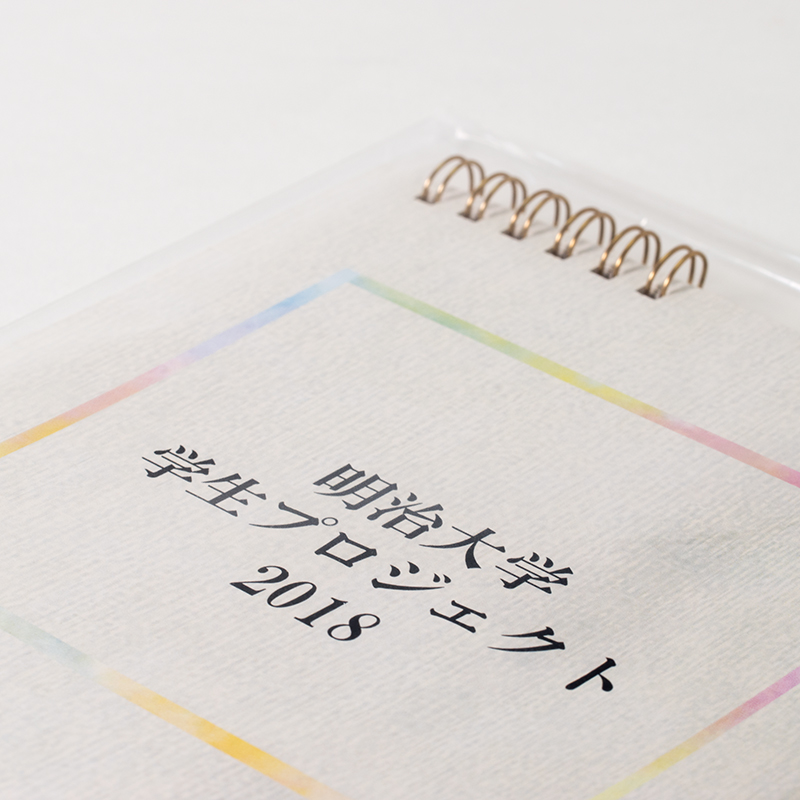 明治大学
学生プロジェクト
2018